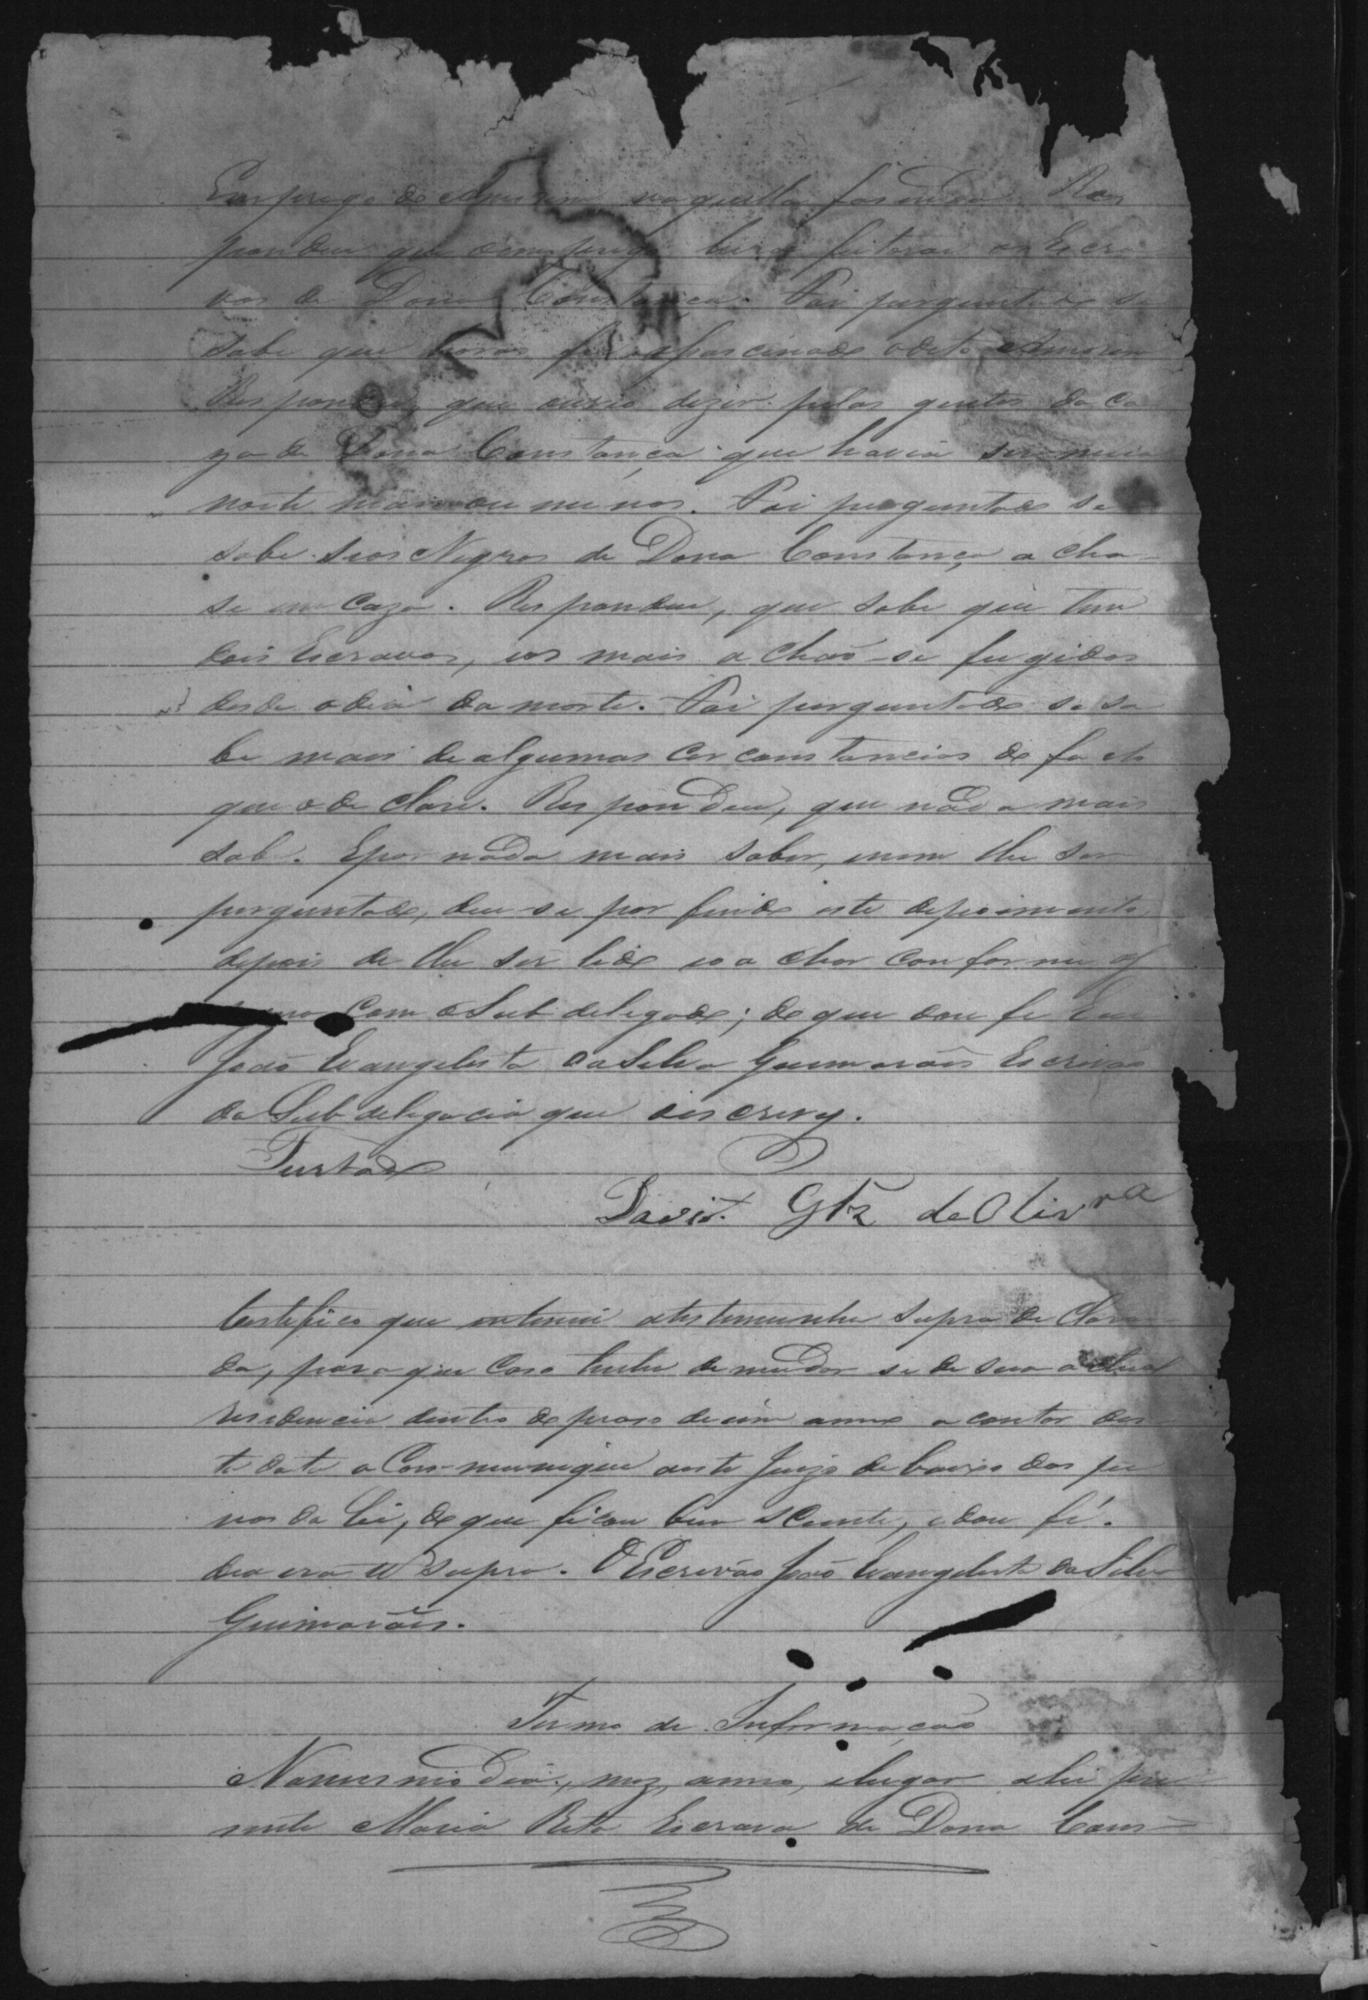 Emprego de Amorim naquella fasenda. Res
pondeu que o emprego hera feitorar os Escra
vos de Dona Constança. Foi perguntado se
sabe que horas foi assascinado o dito Amorim
Respondeu, que ouvio dizer pelas gentes da ca
za de Dona Constança que havia ser meia
noite mais ou menos. Foi perguntado se
sabe se os Negros de Dona Constança acha-
se em caza. Respondeu, que sabe que tem
dois Escravos, e os mais achaõ-se fugidos
desde o dia da morte. Foi perguntado se sa
be mais de algumas circonstancias do facto
que o declare. Respondeu, que nada mais
sabe. E por nada mais saber, e nem lhe ser
perguntado, deu-se por findo este depoimento
depois de lhe ser lido e o achar conforme
com o Subdelegado; do que dou fé Eu
João Evangelista da Silva Guimarães Escrivão
da Subdelegacia que o iscrevy.
Furtado
David Glz de Olivra
Certefico que entemei a testemunha supra declara
da, para que caso tenha de mudar-se de sua actual
residencia dentro do praso de úm anno a contar des
ta data a Communique a este Juizo debaixo das pe
nas da Lei, do que ficou bem sciente, e dou fé.
dia era ut supra. O Escrivão João Evangelista da Silva
Guimarães.
Termo de Informação
No mesmo dia, mez, anno, e lugar ahi pre
sente Maria Rita Escrava de Dona Cons-